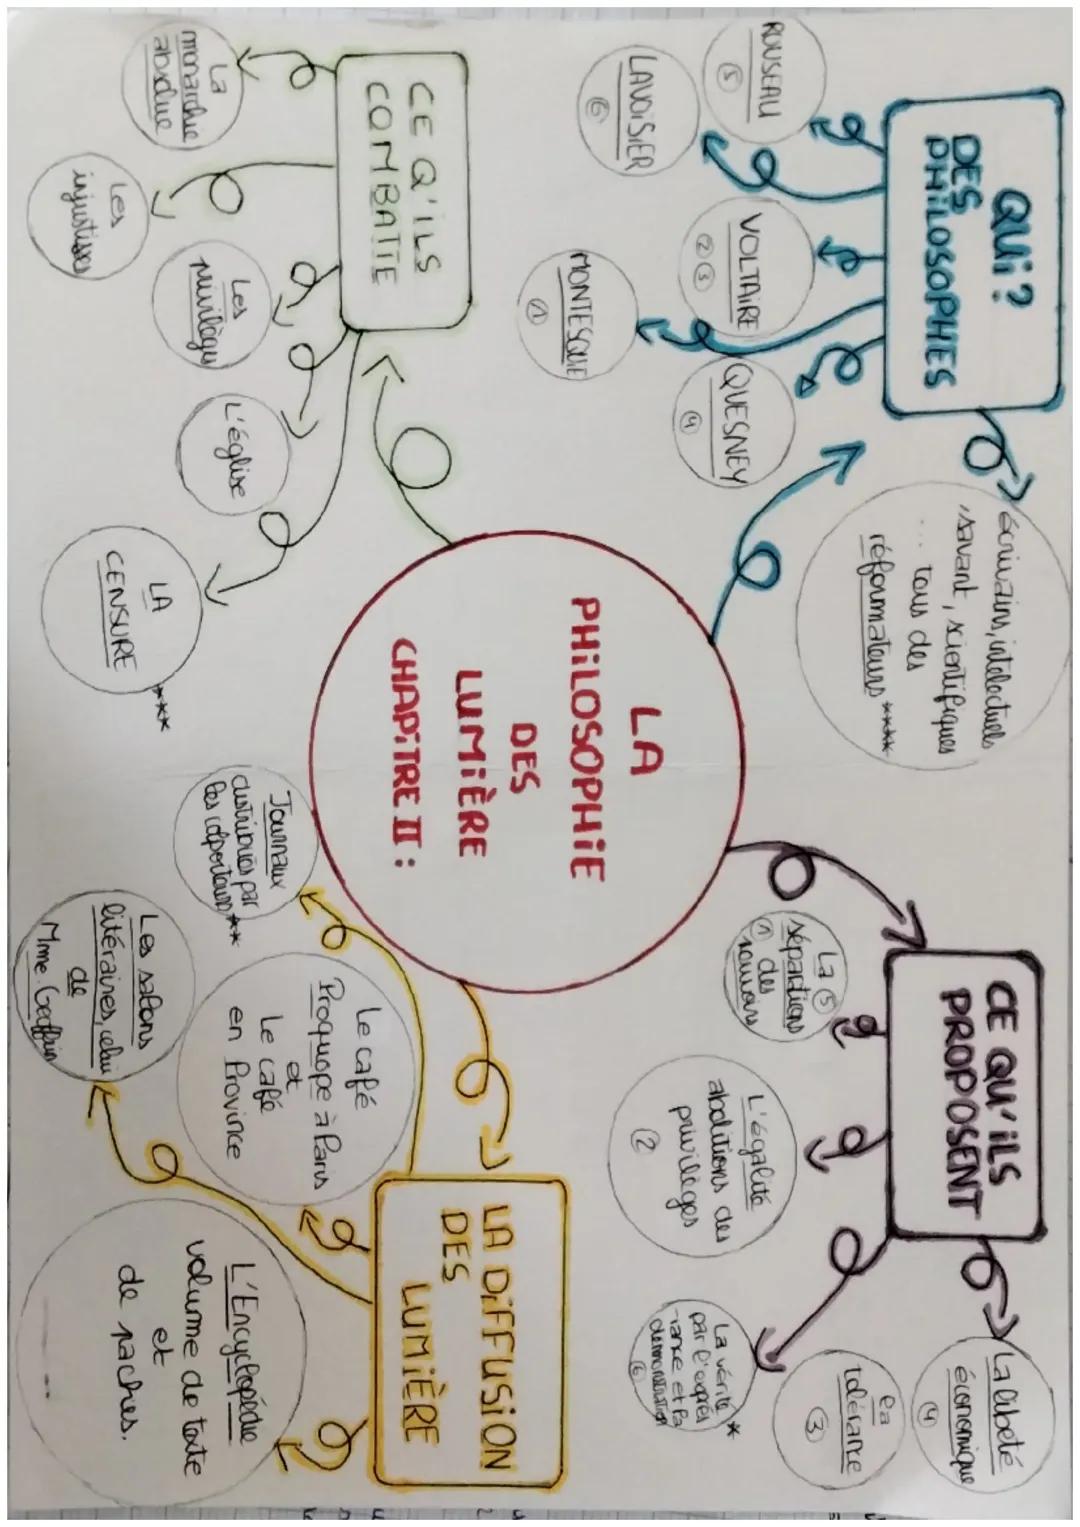 LA
PHILOSOPHIE
DES
LUMIÈRE
CHAPITRE II :
QUI ?
DES
PHILOSOPHES
écrivains, intelectuels
, savant, scientifiques
... tous des
réformateurs ****
ROUSEAU
⑤
LAVOISIER
⑥
VOLTAIRE
② ③
MONTESQUIE
①
QUESNEY
④
CE QU'ILS
PROPOSENT
La ⑤
sépartions
① des
pouvoirs
L'égalité
abolitions des
privilèges
②
La vérité *
par l'expé
rance et la
démonstration
⑥
la
tolérance
③
La libeté
économique
④
CE Q'ILS
COMBATTE
La
monarchie
absolue
Les
injustisses
Les
privilègs
L'église
LA
CENSURE
***
LA DIFFUSION
DES
LUMIÈRE
Journaux
distribués par
les colporteurs **
Le café
Proquope à Paris
et
Le café
en Province
Les salons
litéraires, celui
de
Mme. Geoffrin
L'Encyclopédie
volume de texte
et
de paches.